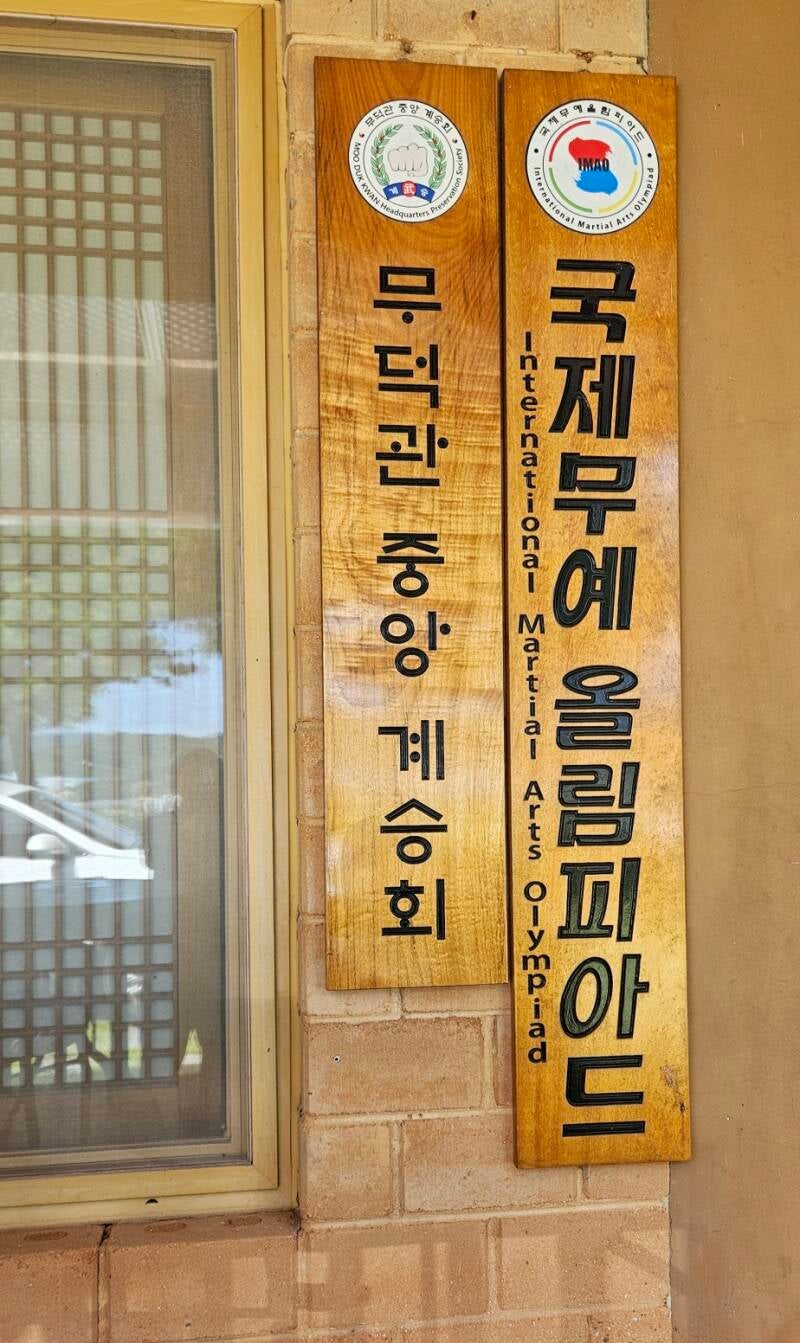 무덕관 중앙 계승회
MOO DUK KWAN Headquarters Preservation Society
계 武 승
무덕관 중앙 계승회
국제무예올림피아드
IMAO
International Martial Arts Olympiad
국제무예 올림피아드
International Martial Arts Olympiad